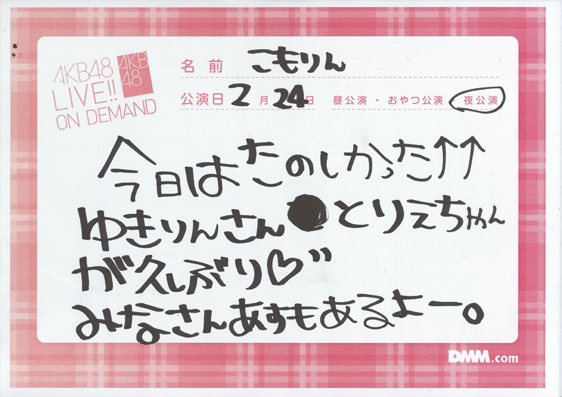 AKB48
LIVE!!
ON DEMAND
AKB
48
名前 こもりん
公演日 2月24日 昼公演・おやつ公演 夜公演
今日はたのしかった↑↑
ゆきりんさん●とりえちゃん
が久しぶり♡"
みなさんあすもあるよー。
DMM.com